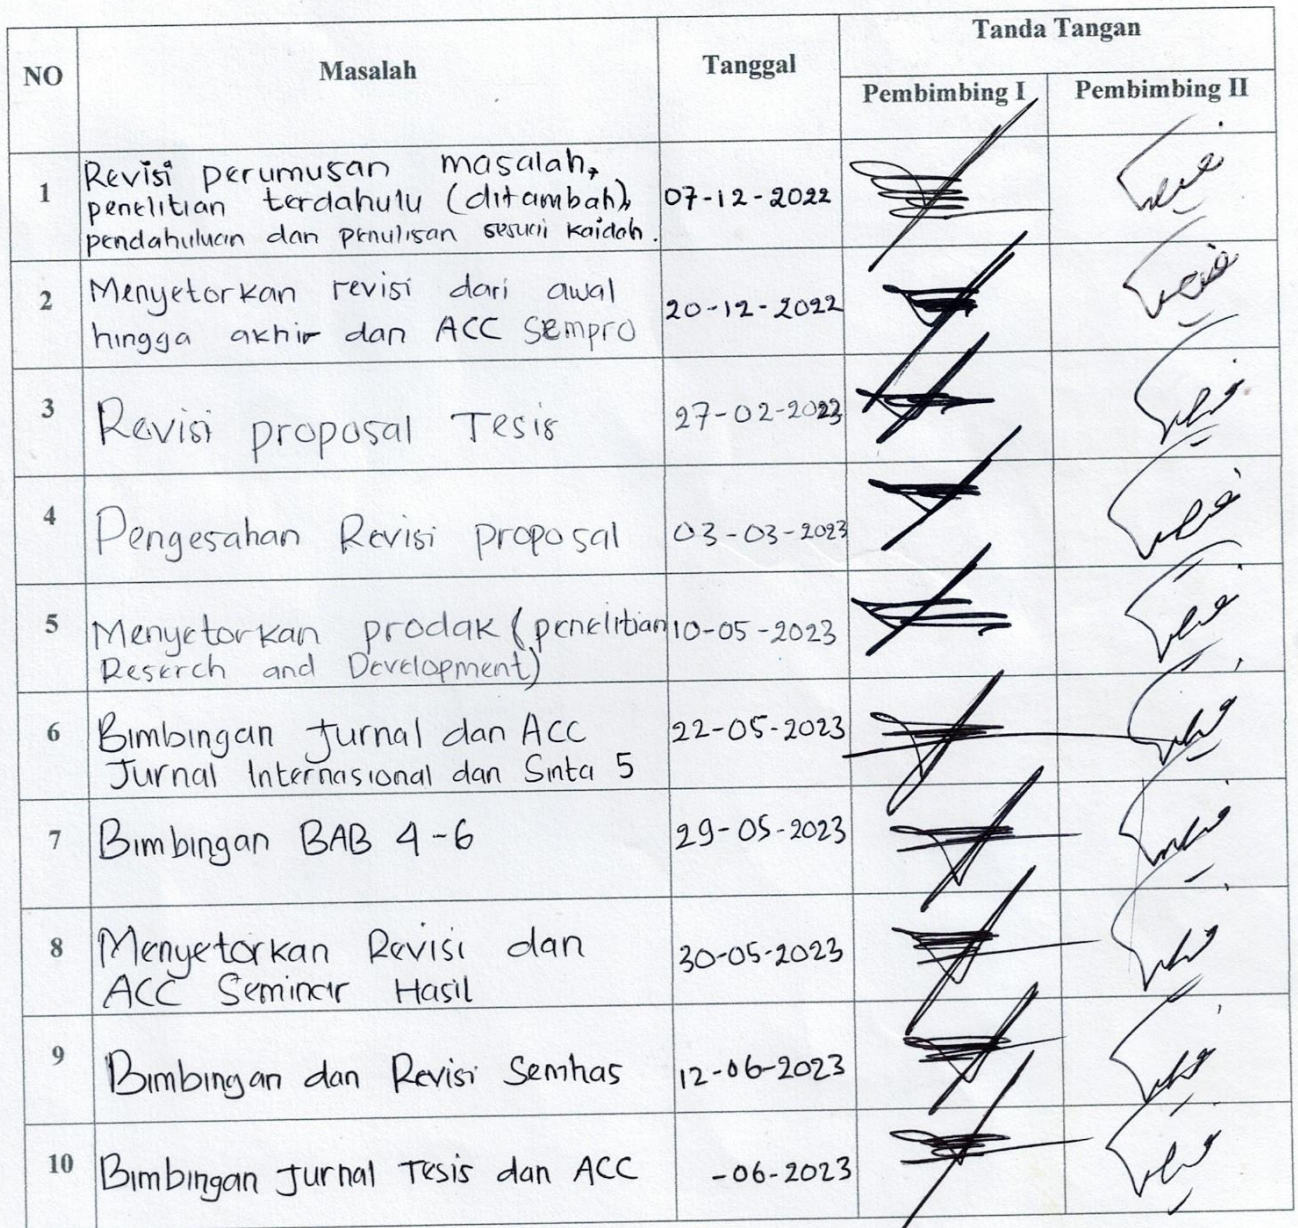 NO Masalah Tanggal Tanda Tangan
Pembimbing I Pembimbing II
1 Revisi perumusan masalah, 07-12-2022
penelitian terdahulu (ditambah),
pendahuluan dan penulisan sesuai kaidah.
2 Menyetorkan revisi dari awal 20-12-2022
hingga akhir dan ACC Sempro
3 Revisi proposal Tesis 27-02-2023
4 Pengesahan Revisi proposal 03-03-2023
5 Menyetorkan prodak (penelitian 10-05-2023
Reserch and Development)
6 Bimbingan Jurnal dan ACC 22-05-2023
Jurnal Internasional dan Sinta 5
7 Bimbingan BAB 4-6 29-05-2023
8 Menyetorkan Revisi dan 30-05-2023
ACC Seminar Hasil
9 Bimbingan dan Revisi Semhas 12-06-2023
10 Bimbingan Jurnal Tesis dan ACC -06-2023